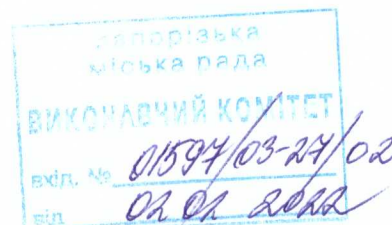 запорізька
міська рада
ВИКОНАВЧИЙ КОМІТЕТ
вхід. № 01597/03-27/02
від 02 02 2022